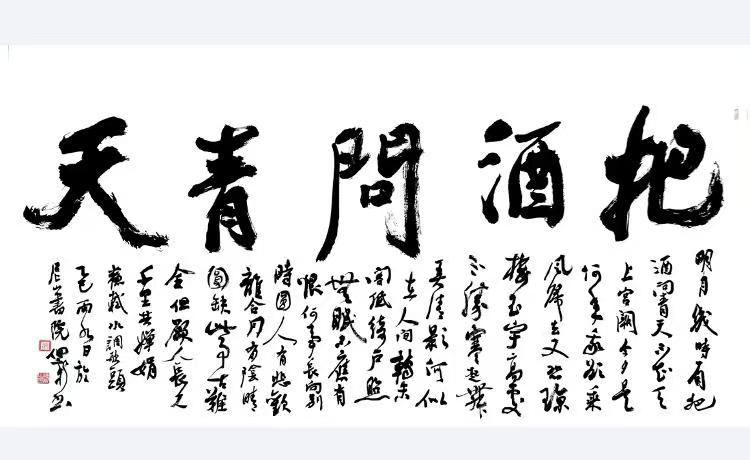 把酒問青天
明月幾時有把
酒问青天不知天
上宫阙今夕是
何年我欲乘
风归去又恐琼
楼玉宇高处
不胜寒起舞
弄清影何似
在人间轉朱
阁低绮户照
無眠不應有
恨何事長向别
時圆人有悲歡
離合月有陰晴
圓缺此事古難
全但願人長久
千里共嬋娟
蘇軾水調歌頭
乙巳雨水日於
尼山書院